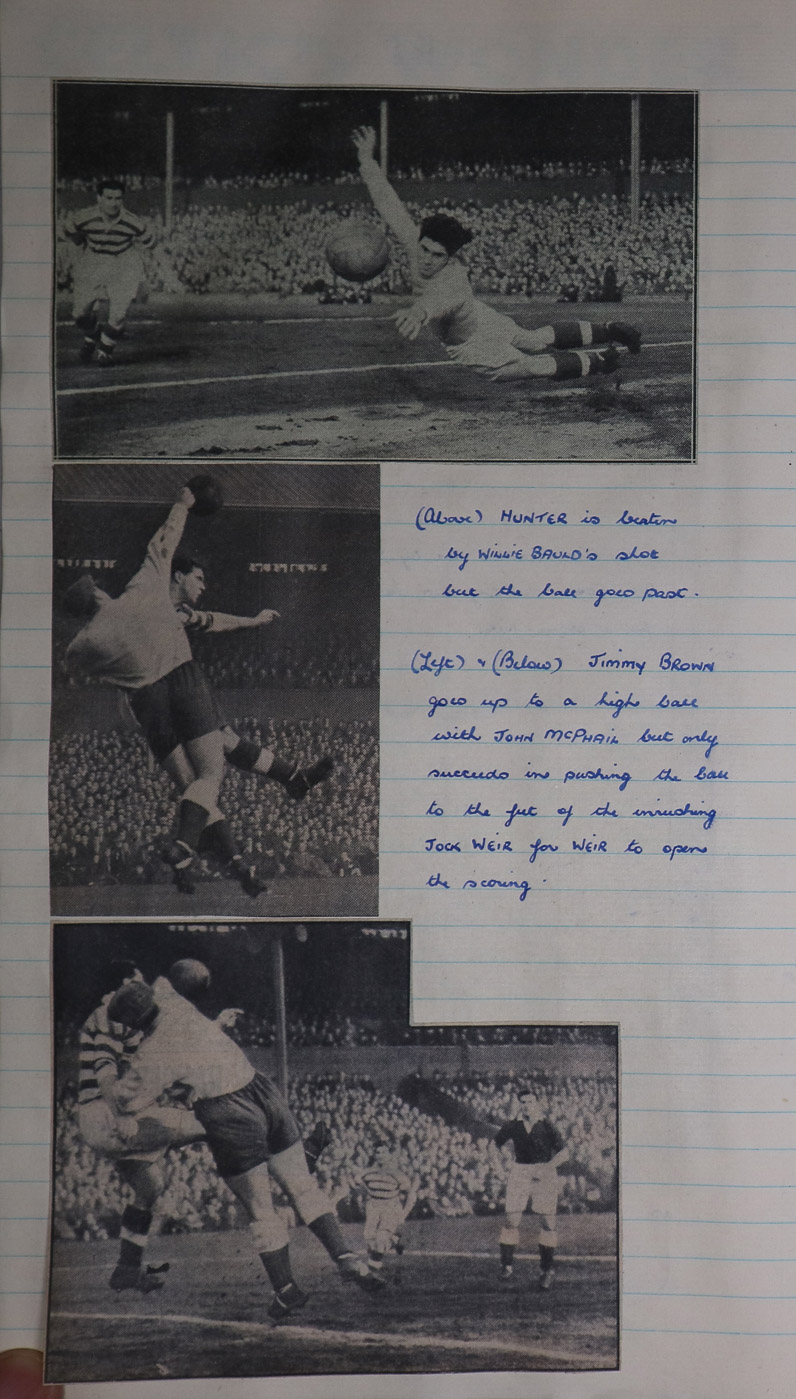 (Above) HUNTER is beaten
by WILLIE BAULD'S shot
but the ball goes past.
(Left) & (Below) JIMMY BROWN
goes up to a high ball
with JOHN MCPHAIL but only
succeeds in pushing the ball
to the feet of the inrushing
JOCK WEIR for WEIR to open
the scoring.